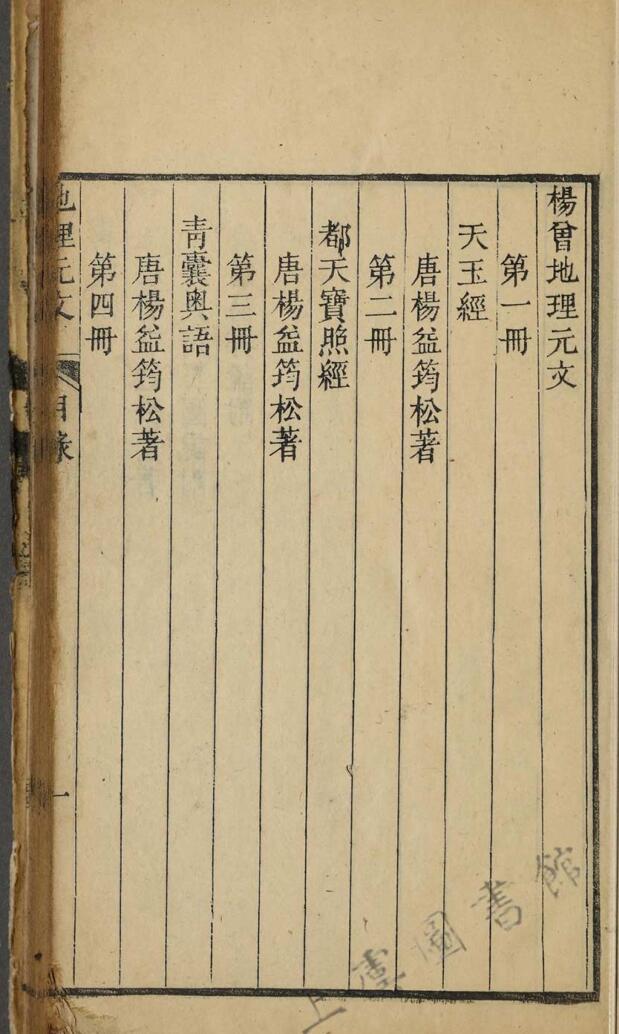 楊曾地理元文
第一冊
天玉經
唐楊益筠松著
第二冊
都天寶照經
唐楊益筠松著
第三冊
青囊奧語
唐楊益筠松著
第四冊
地理元文 目錄
一
上虞圖書館